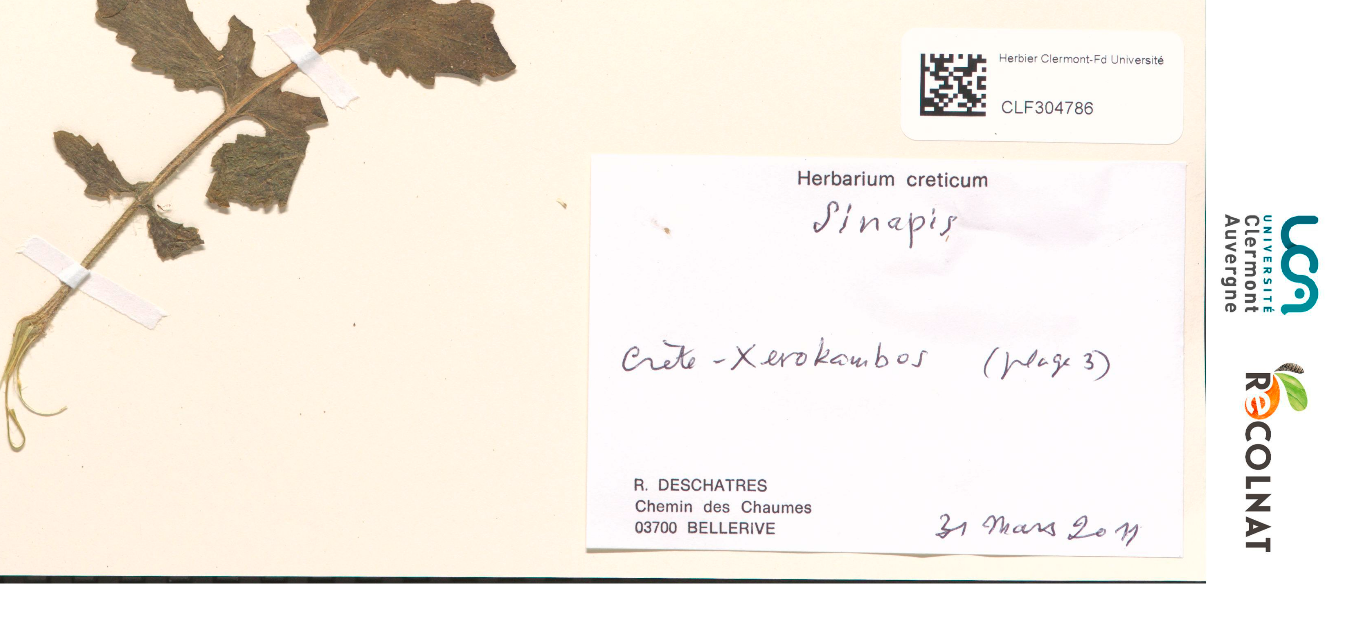 Herbier Clermont-Fd Université
CLF304786
Herbarium creticum
Sinapis
Crète - Xerokambos (plage 3)
R. DESCHATRES
Chemin des Chaumes
03700 BELLERIVE
31 Mars 2011
uca
UNIVERSITÉ
Clermont
Auvergne
ReCOLNAT